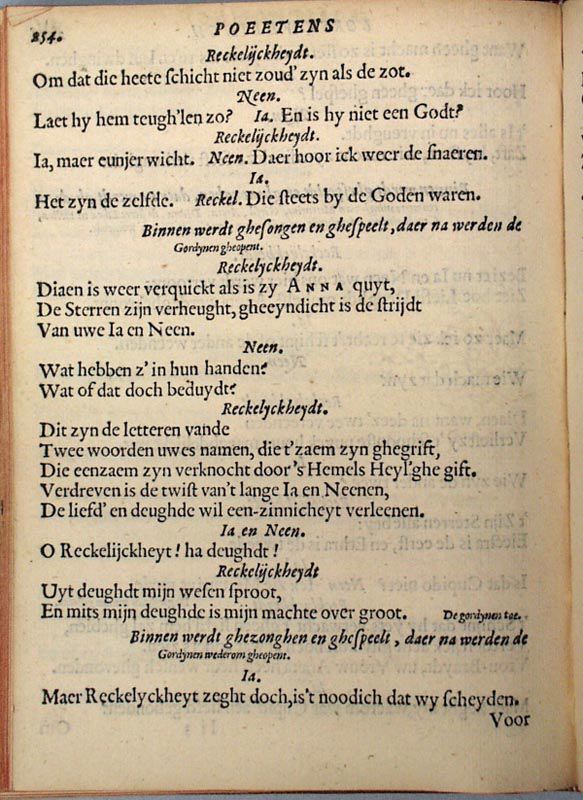 254. POEETENS
Reckelijckheydt.
Om dat die heete schicht niet zoud' zyn als de zot.
Neen.
Laet hy hem teugh'len zo? Ia. En is hy niet een Godt?
Reckelijckheydt.
Ia, maer eunjer wicht. Neen. Daer hoor ick weer de snaeren.
Ia.
Het zyn de zelfde. Reckel. Die steets by de Goden waren.
Binnen werdt ghesongen en ghespeelt, daer na werden de
Gordynen gheopent.
Reckelyckheydt.
Diaen is weer verquickt als is zy ANNA quyt,
De Sterren zijn verheught, gheeyndicht is de strijdt
Van uwe Ia en Neen.
Neen.
Wat hebben z' in hun handen?
Wat of dat doch beduydt?
Reckelyckheydt.
Dit zyn de letteren vande
Twee woorden uwes namen, die t'zaem zyn ghegrift,
Die eenzaem zyn verknocht door's Hemels Heyl'ghe gift.
Verdreven is de twist van't lange Ia en Neenen,
De liefd' en deughde wil een-zinnicheyt verleenen.
Ia en Neen.
O Reckelijckheyt! ha deughdt!
Reckelijckheydt
Uyt deughdt mijn wesen sproot,
En mits mijn deughde is mijn machte over groot. De gordynen toe.
Binnen werdt ghezonghen en ghespeelt, daer na werden de
Gordynen wederom gheopent.
Ia.
Maer Reckelyckheyt zeght doch, is't noodich dat wy scheyden.
Voor